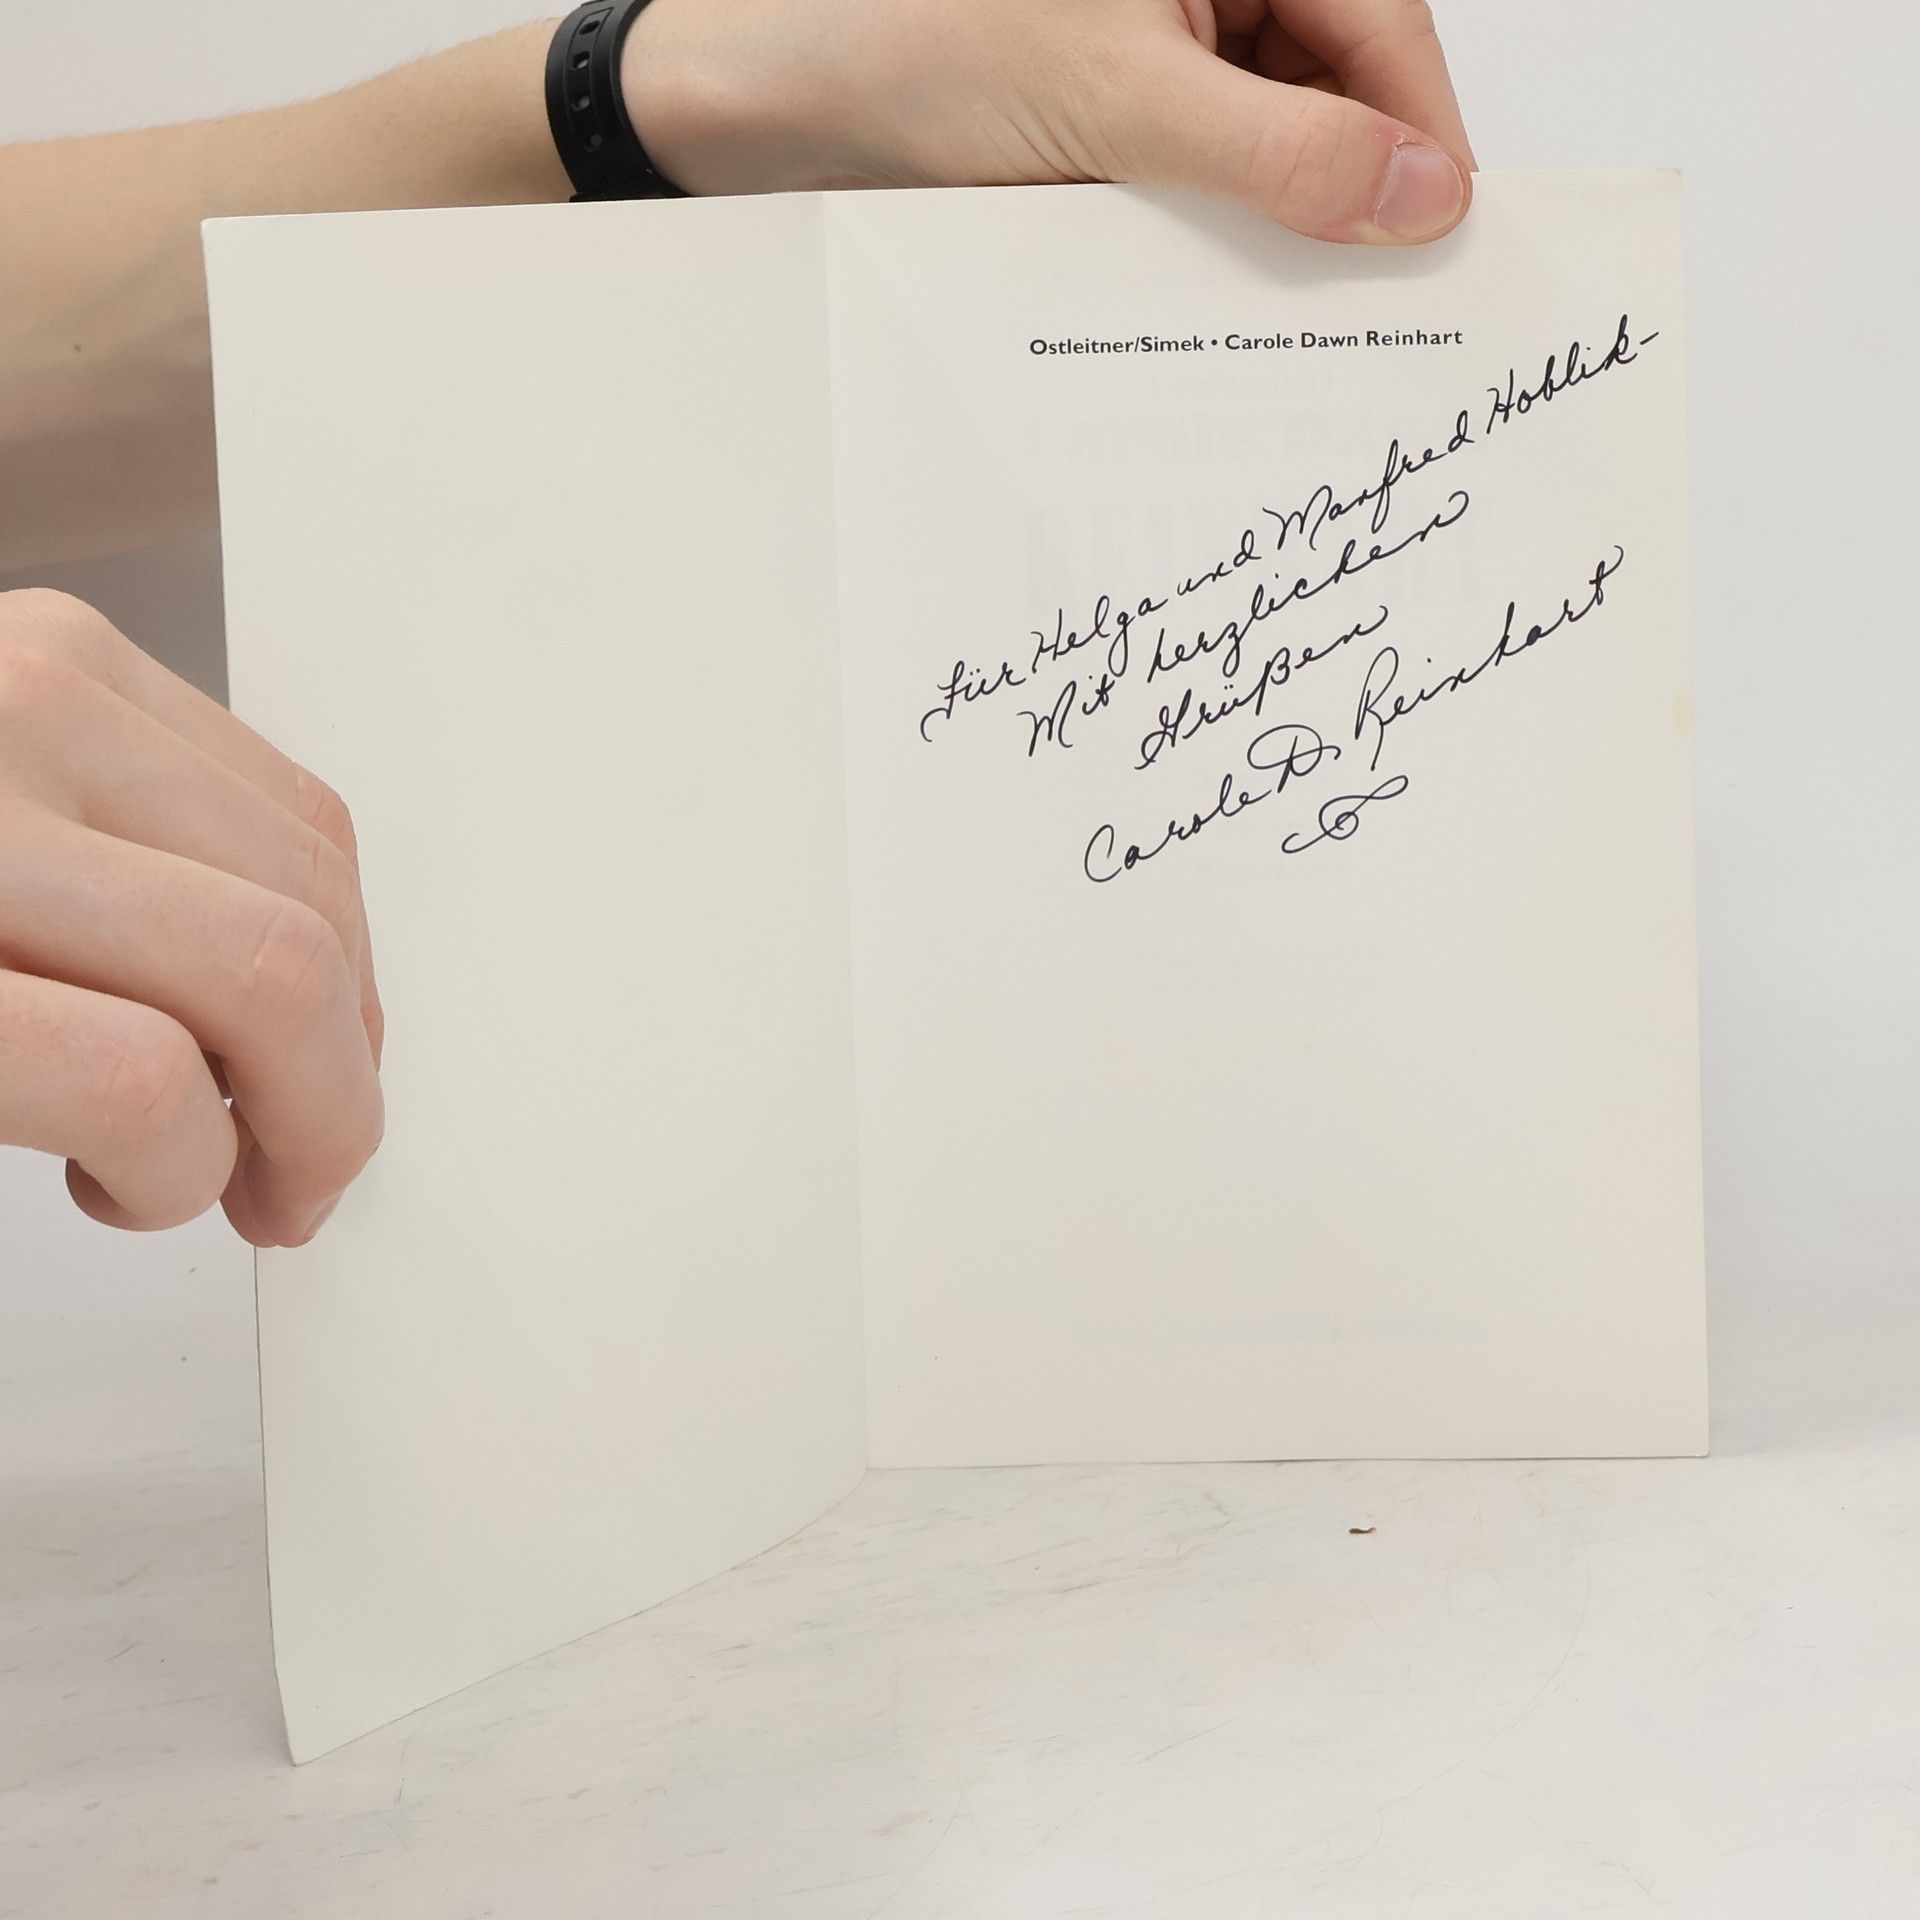 Ostleitner/Simek • Carole Dawn Reinhart
Für Helga und Manfred Hoblik-
Mit herzlichen
Grüßen
Carole D. Reinhart